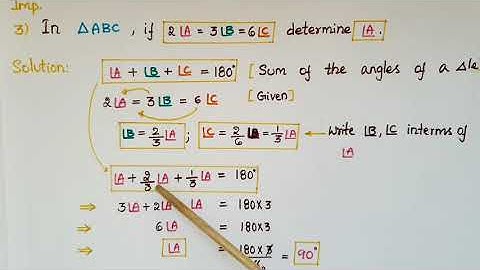 Imp.
3) In △ABC, if 2∠A = 3∠B = 6∠C determine ∠A.
Solution: ∠A + ∠B + ∠C = 180° [Sum of the angles of a △le
2∠A = 3∠B = 6∠C [Given]
∠B = 2/3 ∠A ; ∠C = 2/6 ∠A = 1/3 ∠A ← Write ∠B, ∠C interms of
∠A
∠A + 2/3 ∠A + 1/3 ∠A = 180°
⇒ 3∠A + 2∠A ∠A = 180×3
⇒ 6∠A = 180×3
⇒ ∠A = 180×3/6 = 90°